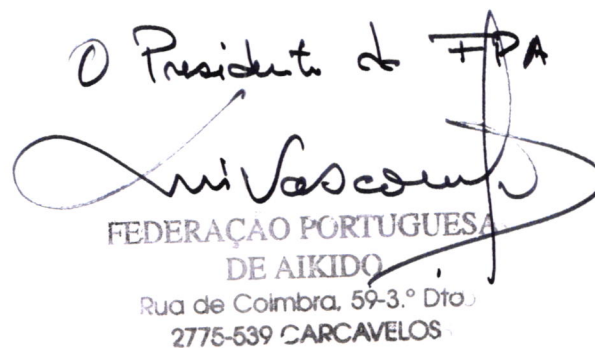 O Presidente da FPA
Luis Vasconcelos
FEDERAÇÃO PORTUGUESA
DE AIKIDO
Rua de Coimbra, 59-3.º Dto.
2775-539 CARCAVELOS